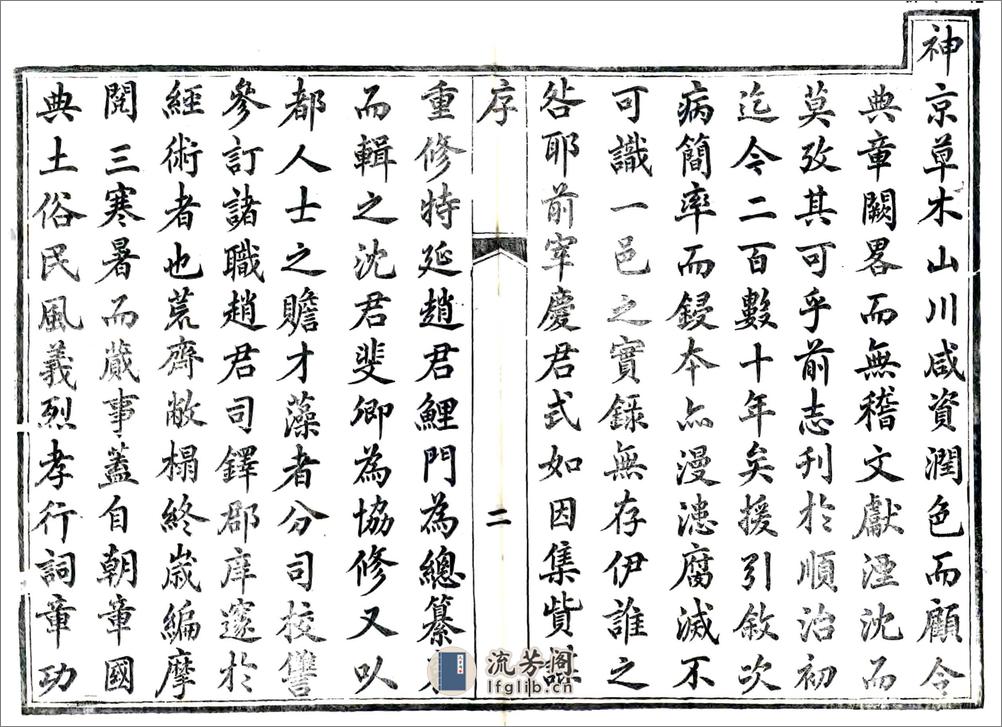 神京草木山川咸資潤色而顧令
典章闕畧而無稽文獻湮沈而
莫攷其可乎前志刊於順治初
迄今二百數十年矣援引敘次
病簡率而鋟本亦漫漶腐滅不
可識一邑之實錄無存伊誰之
咎耶前宰慶君式如因集貲謀
序
二
重修特延趙君鯉門為總纂
而輯之沈君斐卿為協修又以
都人士之贍才藻者分司校讐
參訂諸職趙君司鐸郡庠邃於
經術者也荒齋敝榻終歲編摩
閱三寒暑而蕆事蓋自朝章國
典土俗民風義烈孝行詞章功
流芳閣
lfglib.cn